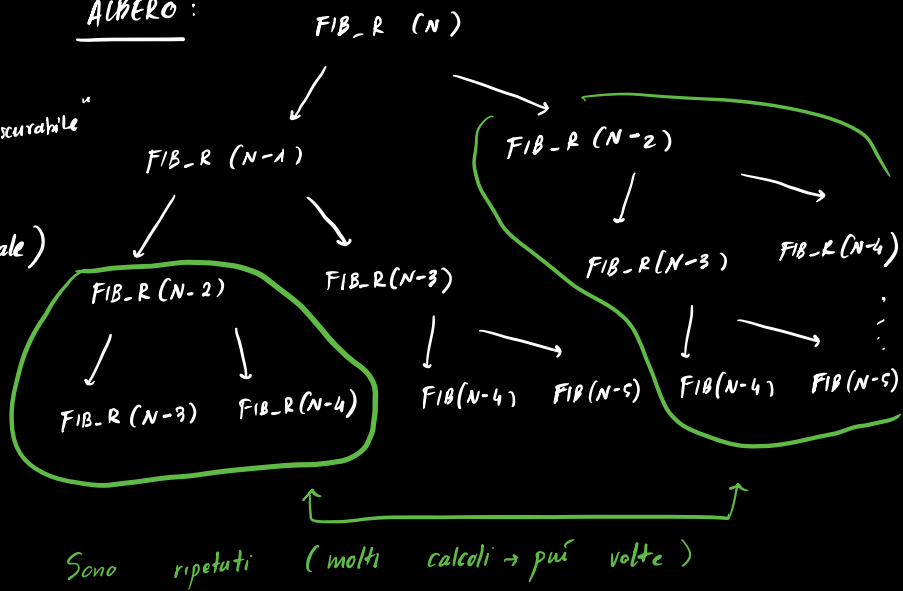 ALBERO :
FIB_R (N)
scurabile"
FIB_R (N-1)
FIB_R (N-2)
ale)
FIB_R(N-2)
FIB_R(N-3)
FIB_R(N-3)
FIB_R(N-4)
FIB_R(N-3)
FIB_R(N-4)
FIB(N-4)
FIB(N-5)
FIB(N-4)
FIB(N-5)
Sono ripetuti (molti calcoli → puí volte)